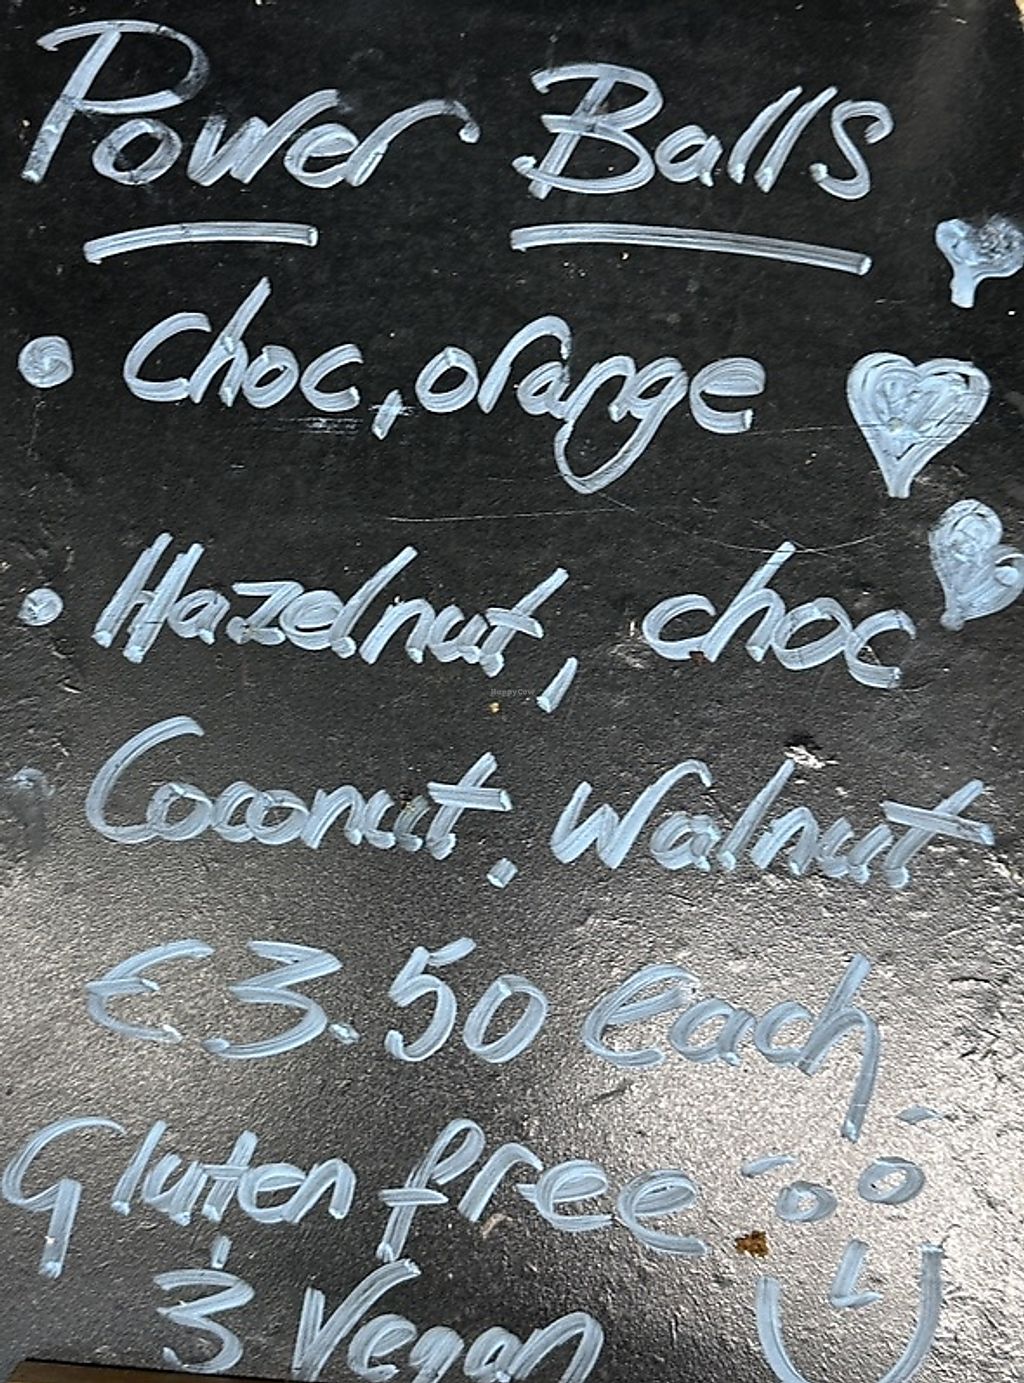 Power Balls
• Choc, orange
• Hazelnut, choc
Coconut, Walnut
€3.50 each
Gluten free
3 Vegan
HappyCow